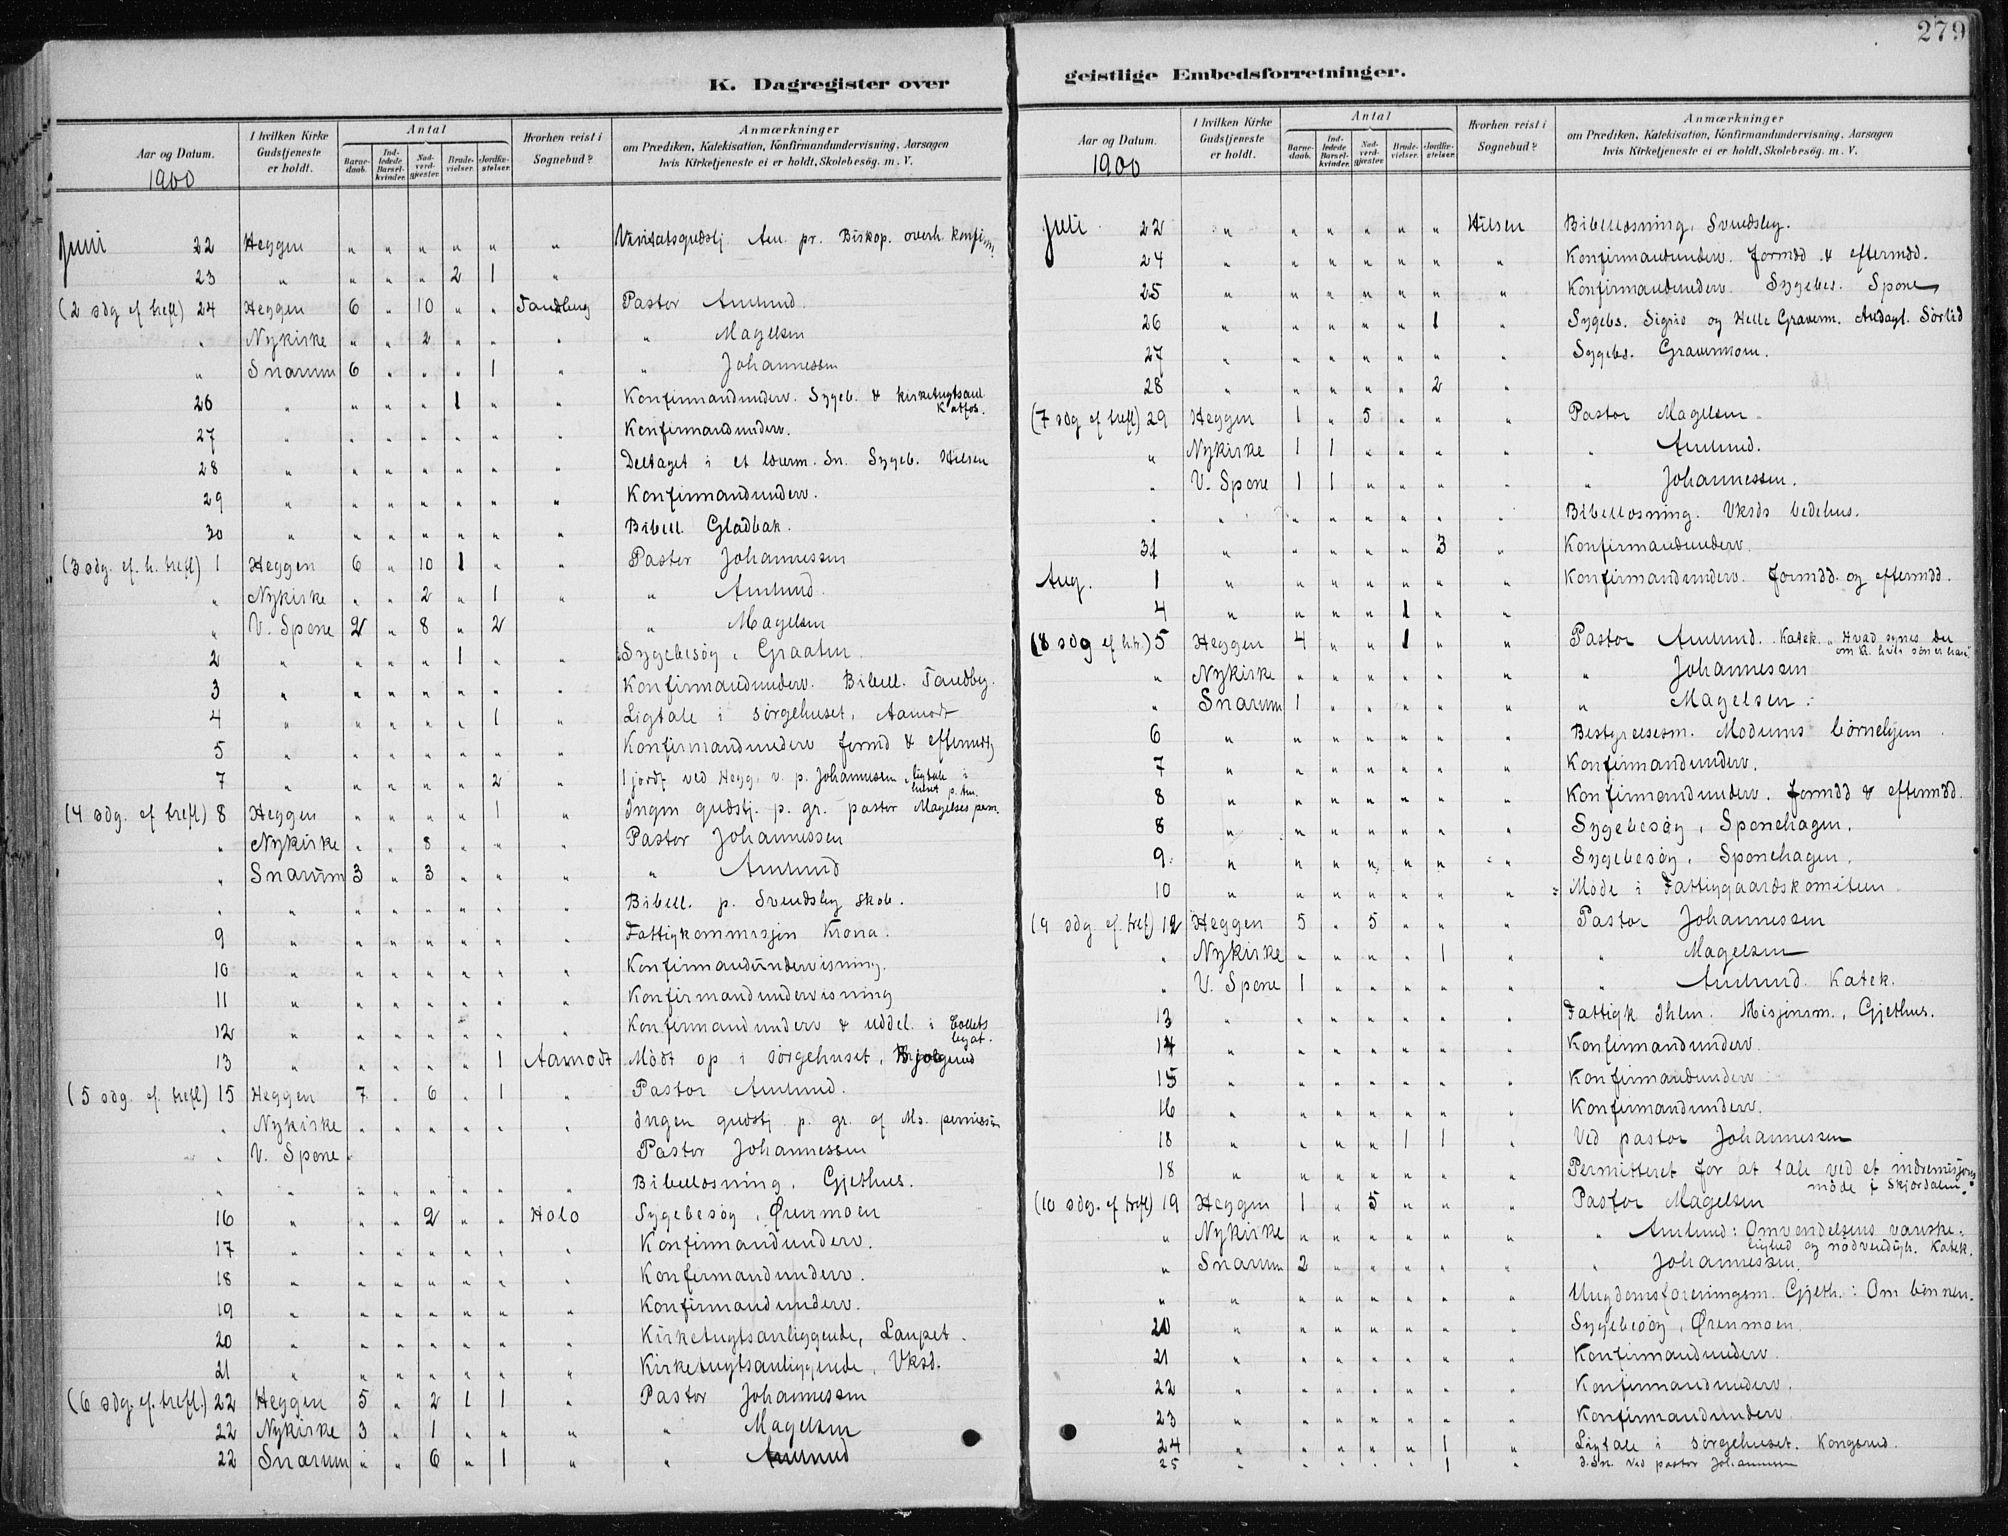 279
K. Dagregister over
geistlige Embedsforretninger.
Aar og Datum. | I hvilken Kirke Gudstjeneste er holdt. | Antal | Barnedaab. | Indledede Barselkvinder. | Nadverdgjester. | Brudevielser. | Jordfæstelser. | Hvorhen reist i Sognebud? | Anmærkninger om Prædiken, Katekisation, Konfirmandundervisning, Aarsagen hvis Kirketjeneste ei er holdt, Skolebesøg. m. V.
1900
Juni 22 Heggen " " " " " " Visitatsgudstj. Am. pr. Biskop. overh. konfirm.
23 " " " " 2 1 "
(2 sdg ef trefl) 24 Heggen 6 " 10 " " Tandberg Pastor Amlund
" Nykirke " " 2 " " " " Magelsen
" Snarum 6 " " " 1 " " Johannessen
26 " " " " 1 " " Konfirmandunderv. Sygeb. & kirketugtsanl. Katfos.
27 " " " " " " " Konfirmandunderv.
28 " " " " " " " Deltaget i et lærerm. Sn. Sygeb. Hilsen
29 " " " " " " " Konfirmandunderv.
30 " " " " " " " Bibell. Gladbak.
(3 sdg. ef. h. trefl) 1 Heggen 6 " 10 1 " " Pastor Johannessen
" Nykirke " " 2 " 1 " " Amlund.
" V. Spone 2 " 8 " 2 " Magelsen
2 " " " " 1 " " Sygebesøg, Graaten.
3 " " " " " " " Konfirmandunderv. Bibell. Tandbg.
4 " " " " " 1 " Ligtale i sørgehuset, Aamodt
5 " " " " " " " Konfirmandunderv formd & eftermdd
7 " " " " " 2 " 1 jordf ved Hegg. v. p. Johannessen, ligtale i huset p. Am.
(4 sdg. ef trefl) 8 Heggen " " " " 1 " Ingen gudstj. p. gr. pastor Magelsens perm.
" Nykirke " " 8 " " " Pastor Johannessen
" Snarum 3 " 3 " " " " Amlund
" " " " " " " " Bibell. p. Svendsby skole.
9 " " " " " " " Fattigkommisjon Krona.
10 " " " " " " " Konfirmandundervisning.
11 " " " " " " " Konfirmandundervisning
12 " " " " " " " Konfirmandunderv & uddel. i Collets legat.
13 " " " " " 1 Aamodt Mödt op i sørgehuset,
(5 sdg. ef. trefl) 15 Heggen 7 " 6 " 1 " Pastor Amlund.
" Nykirke " " " " " " Ingen gudstj p. gr. af Ms. permission
" V. Spone Pastor Johannessen
" " " " " " " " Bibellæsning, Gjethus.
16 " " " 2 " " Holo Sygebesøg, Ørenmoen
17 " " " " " " " Konfirmandunderv.
18 " " " " " " " Konfirmandunderv.
19 " " " " " " " Konfirmandunderv.
20 " " " " " " " Kirketugtsanliggende, Laupet.
21 " " " " " " " Kirketugtsanliggende, Vksd.
(6 sdg. ef. trefl.) 22 Heggen 5 " 2 1 1 " Pastor Johannessen
22 Nykirke 3 " 1 " " " " Magelsen
22 Snarum " " 6 " 1 " " Amlund
Aar og Datum. | I hvilken Kirke Gudstjeneste er holdt. | Antal | Barnedaab. | Indledede Barselkvinder. | Nadverdgjester. | Brudevielser. | Jordfæstelser. | Hvorhen reist i Sognebud? | Anmærkninger om Prædiken, Katekisation, Konfirmandundervisning, Aarsagen hvis Kirketjeneste ei er holdt, Skolebesøg. m. V.
1900
Juli 22 " " " " " " Hilsen Bibellæsning, Svendsby.
24 " " " " " " " Konfirmandunderv. formdd & eftermdd.
25 " " " " " " " Konfirmandunderv Sygebes. Spone
26 " " " " " 1 " Sygebs. Sigrid og Helle Graverm. Andagt. Sørlid
27 " " " " " " " Sygebs. Gravermoen.
28 " " " " " 2 "
(7 sdg ef trefl) 29 Heggen 1 " 5 " " " Pastor Magelsen
" Nykirke 1 1 " " " " " Amlund.
" V. Spone 1 1 " " " " " Johannessen.
" " " " " " " " Bibellæsning. Vksds bedehus.
31 " " " " " 3 " Konfirmandunderv.
Aug. 1 " " " " " " " Konfirmandunderv. formdd. og eftermdd.
4 " " " " 1 " "
(8 sdg ef h.tr.) 5 Heggen 4 " " 1 " " Pastor Amlund. Katek. „Hvad synes der om K. hvis søn er han".
" Nykirke " " " " " " " Johannessen
" Snarum 1 " " " " " " Magelsen.
6 " " " " " " " Bestyrelsesm. Modums børnehjem.
7 " " " " " " " Konfirmandunderv.
8 " " " " " " " Konfirmandunderv. formdd & eftermdd.
8 " " " " " " " Sygebesøg, Sponehagen.
9 " " " " " " " Sygebesøg, Sponehagen.
10 " " " " " " " Møde i Fattiggaardskomiteen
(9 sdg ef. tref) 12 Heggen 5 " 5 " " " Pastor Johannessen
" Nykirke " " " " 1 " " Magelsen
" V. Spone 1 " " " " " " Amlund. Katek.
13 " " " " " " " Fattigk Ihlen. Misjonsm., Gjethus.
14 " " " " " " " Konfirmandunderv.
15 " " " " " " " Konfirmandunderv
16 " " " " " " " Konfirmandunderv.
18 " " " " 1 1 " Ved pastor Johannessen
18 " " " " " " " Permitteret for at tale ved et indremisjonsmøde i Skjørdalen.
(10 sdg. ef trefl) 19 Heggen 1 " 5 " " " Pastor Magelsen
" Nykirke " " " " " " " Amlund: Omvendelsens vanskelighed og nødvendigh. Katek.
" Snarum 2 " " " " " " Johannessen.
" " " " " " " " Ungdomsforeningsm. Gjeth.: Om bønnen.
20 " " " " " " " Sygebesøg, Ørenmoen.
21 " " " " " " " Konfirmandunderv.
22 " " " " " " " Konfirmandunderv.
23 " " " " " " " Konfirmandunderv.
24 " " " " " 1 " Ligtale i sørgehuset. Kongsrud.
25 " " " " " 1 " i Sn. ved pastor Johannessen